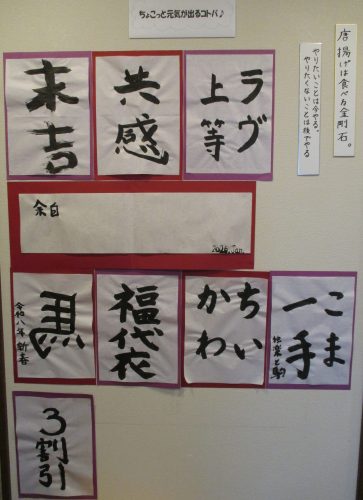 ちょこっと元気が出るコトバ♪
唐揚げは食べる金剛石。
やりたいことは今やる。
やりたくないことは後でやる
ラヴ
上等
共感
末吉
余白
2026. Jan.
こま
一手
伝楽と駒
ちい
かわ
福袋
馬
令和八年 新春
3割引